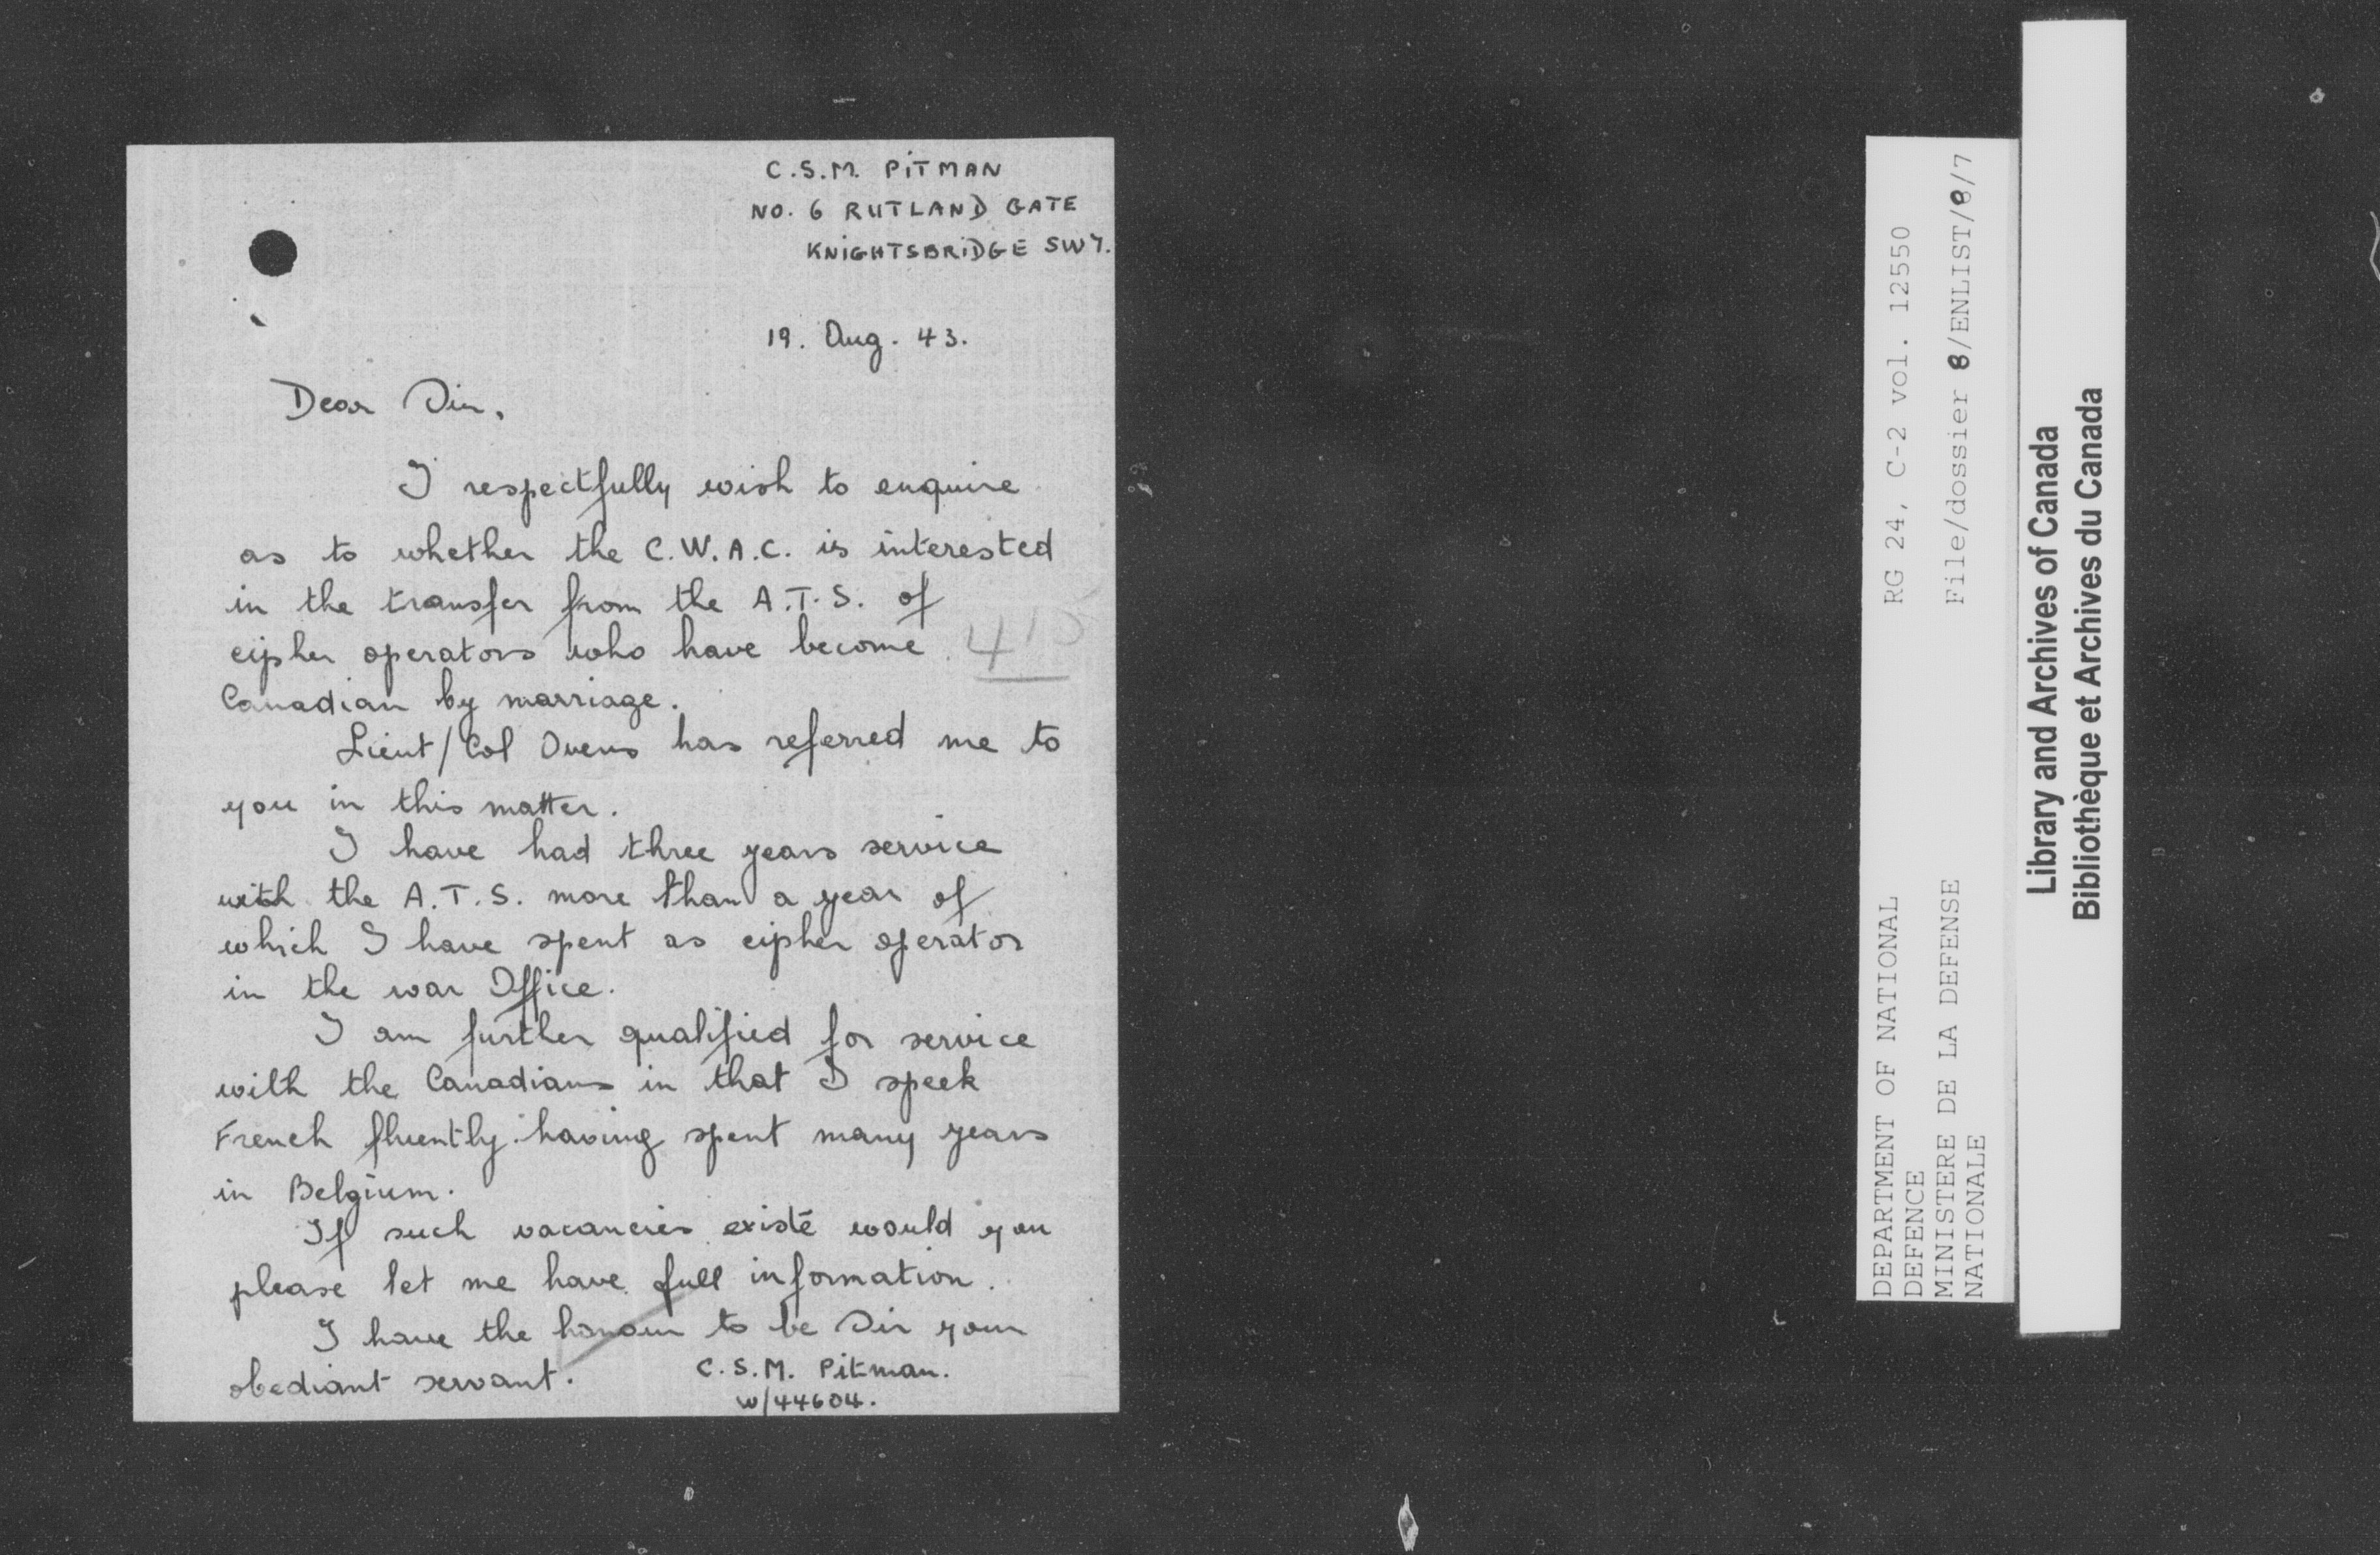 C.S.M. PITMAN
NO. 6 RUTLAND GATE
KNIGHTSBRIDGE SW7.
19. Aug. 43.
Dear Sir,
I respectfully wish to enquire
as to whether the C.W.A.C. is interested
in the transfer from the A.T.S. of
cipher operators who have become
Canadian by marriage.
Lieut/Col Ovens has referred me to
you in this matter.
I have had three years service
with the A.T.S. more than a year of
which I have spent as cipher operator
in the war Office.
I am further qualified for service
with the Canadians in that I speek
French fluently having spent many years
in Belgium.
If such vacancies existe would you
please let me have full information.
I have the honour to be Sir your
obediant servant.
C.S.M. Pitman.
W/44604.
RG 24, C-2 vol. 12550
File/dossier 8/ENLIST/8/7
DEPARTMENT OF NATIONAL
DEFENCE
MINISTERE DE LA DEFENSE
NATIONALE
Library and Archives of Canada
Bibliothèque et Archives du Canada